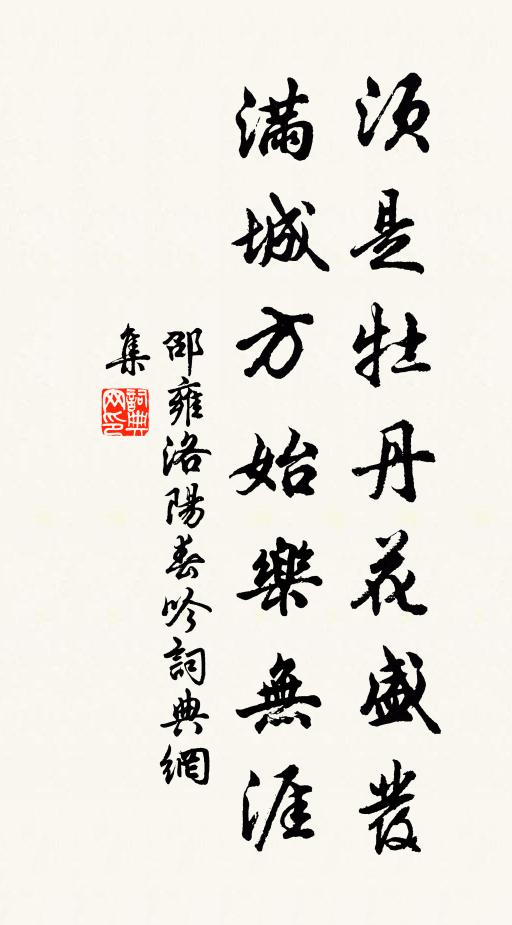 須是牡丹花盛發
滿城方始樂無涯
邵雍洛陽春吟詞典網
集
詞典
网印